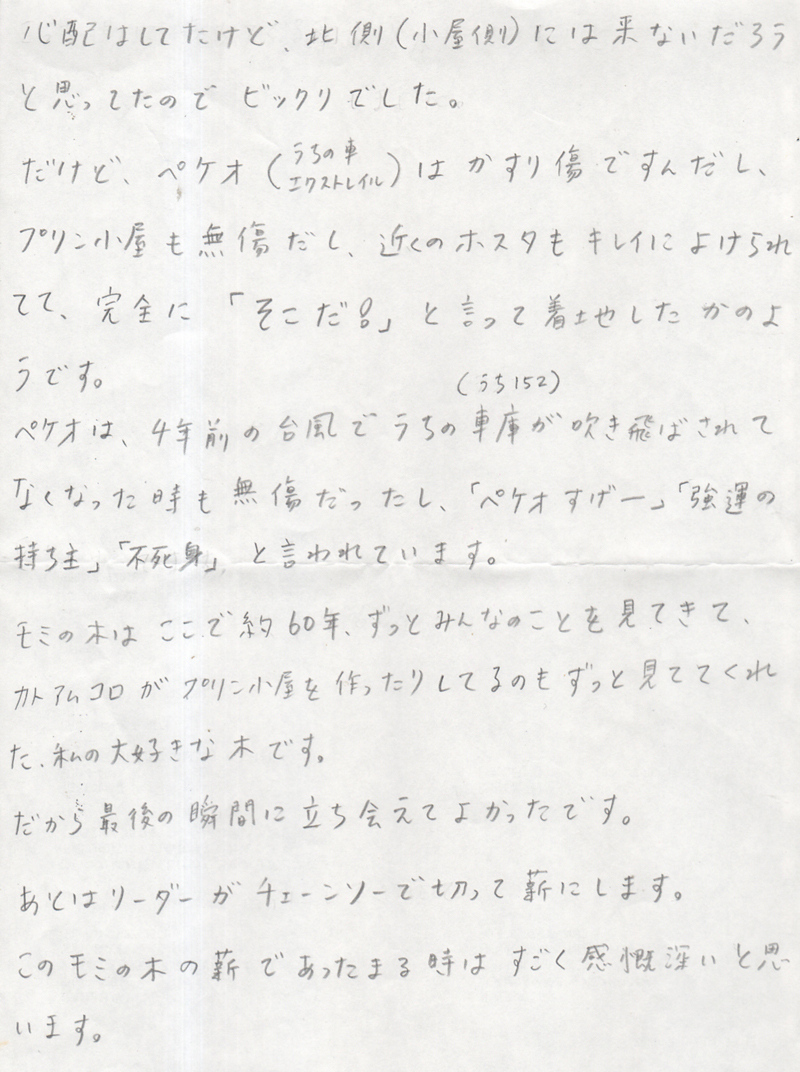 心配はしてたけど、北側(小屋側)には来ないだろう
と思ってたので ビックリでした。
だけど、ペケオ(うちの車 エクストレイル)は かすり傷ですんだし、
プリン小屋も無傷だし、近くのホスタもキレイによけられ
てて、完全に「そこだ!」と言って着地したかのよ
うです。
(うち152)
ペケオは、4年前の台風でうちの車庫が吹き飛ばされて
なくなった時も無傷だったし、「ペケオすげー」「強運の
持ち主」「不死身」と言われています。
モミの木はここで約60年、ずっとみんなのことを見てきて、
カトアムコロがプリン小屋を作ったりしてるのもずっと見ててくれ
た、私の大好きな木です。
だから最後の瞬間に立ち会えてよかったです。
あとはリーダーがチェーンソーで切って薪にします。
このモミの木の薪であったまる時はすごく感慨深いと思
います。